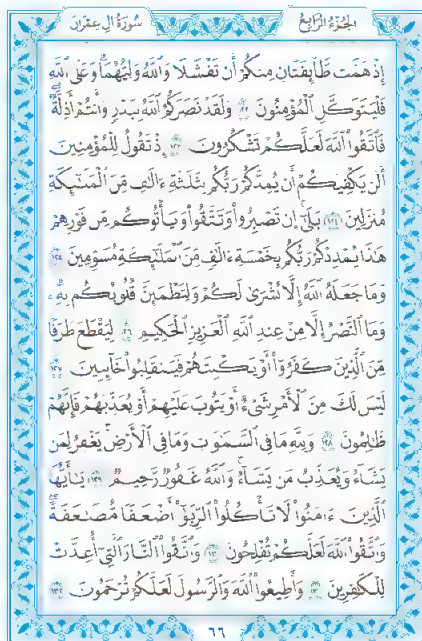 الجزء الرابع سورة آل عمران
إِذْ هَمَّت طَّآئِفَتَانِ مِنكُمْ أَن تَفْشَلَا وَٱللَّهُ وَلِيُّهُمَا وَعَلَى ٱللَّهِ
فَلْيَتَوَكَّلِ ٱلْمُؤْمِنُونَ ١٢٢ وَلَقَدْ نَصَرَكُمُ ٱللَّهُ بِبَدْرٍ وَأَنتُمْ أَذِلَّةٌ
فَٱتَّقُوا۟ ٱللَّهَ لَعَلَّكُمْ تَشْكُرُونَ ١٢٣ إِذْ تَقُولُ لِلْمُؤْمِنِينَ
أَلَن يَكْفِيَكُمْ أَن يُمِدَّكُمْ رَبُّكُم بِثَلَٰثَةِ ءَالَٰفٍ مِّنَ ٱلْمَلَٰٓئِكَةِ
مُنزَلِينَ ١٢٤ بَلَىٰٓ إِن تَصْبِرُوا۟ وَتَتَّقُوا۟ وَيَأْتُوكُم مِّن فَوْرِهِمْ
هَٰذَا يُمْدِدْكُمْ رَبُّكُم بِخَمْسَةِ ءَالَٰفٍ مِّنَ ٱلْمَلَٰٓئِكَةِ مُسَوِّمِينَ ١٢٥
وَمَا جَعَلَهُ ٱللَّهُ إِلَّا بُشْرَىٰ لَكُمْ وَلِتَطْمَئِنَّ قُلُوبُكُم بِهِۦ
وَمَا ٱلنَّصْرُ إِلَّا مِنْ عِندِ ٱللَّهِ ٱلْعَزِيزِ ٱلْحَكِيمِ ١٢٦ لِيَقْطَعَ طَرَفًا
مِّنَ ٱلَّذِينَ كَفَرُوٓا۟ أَوْ يَكْبِتَهُمْ فَيَنقَلِبُوا۟ خَآئِبِينَ ١٢٧
لَيْسَ لَكَ مِنَ ٱلْأَمْرِ شَىْءٌ أَوْ يَتُوبَ عَلَيْهِمْ أَوْ يُعَذِّبَهُمْ فَإِنَّهُمْ
ظَٰلِمُونَ ١٢٨ وَلِلَّهِ مَا فِى ٱلسَّمَٰوَٰتِ وَمَا فِى ٱلْأَرْضِ يَغْفِرُ لِمَن
يَشَآءُ وَيُعَذِّبُ مَن يَشَآءُ وَٱللَّهُ غَفُورٌ رَّحِيمٌ ١٢٩ يَٰٓأَيُّهَا
ٱلَّذِينَ ءَامَنُوا۟ لَا تَأْكُلُوا۟ ٱلرِّبَوٰٓا۟ أَضْعَٰفًا مُّضَٰعَفَةً
وَٱتَّقُوا۟ ٱللَّهَ لَعَلَّكُمْ تُفْلِحُونَ ١٣٠ وَٱتَّقُوا۟ ٱلنَّارَ ٱلَّتِىٓ أُعِدَّتْ
لِلْكَٰفِرِينَ ١٣١ وَأَطِيعُوا۟ ٱللَّهَ وَٱلرَّسُولَ لَعَلَّكُمْ تُرْحَمُونَ ١٣٢
٦٦